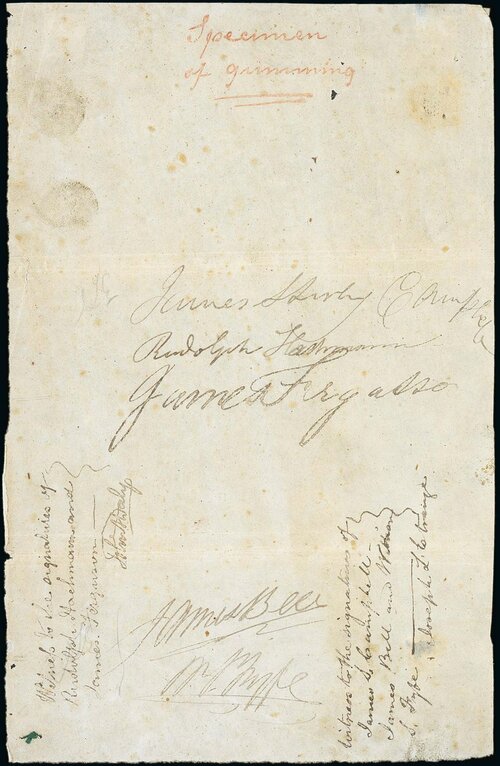 Specimen
of gumming
James Stirby Campbell
Rudolph Hachmann
James Ferguson
Witness to the signatures of
Rudolph Hachmann and
James Ferguson
James Bell
Wm S. Fyfe
Witness to the signatures of
James S. Campbell
James Bell and William
S. Fyfe Joseph L.